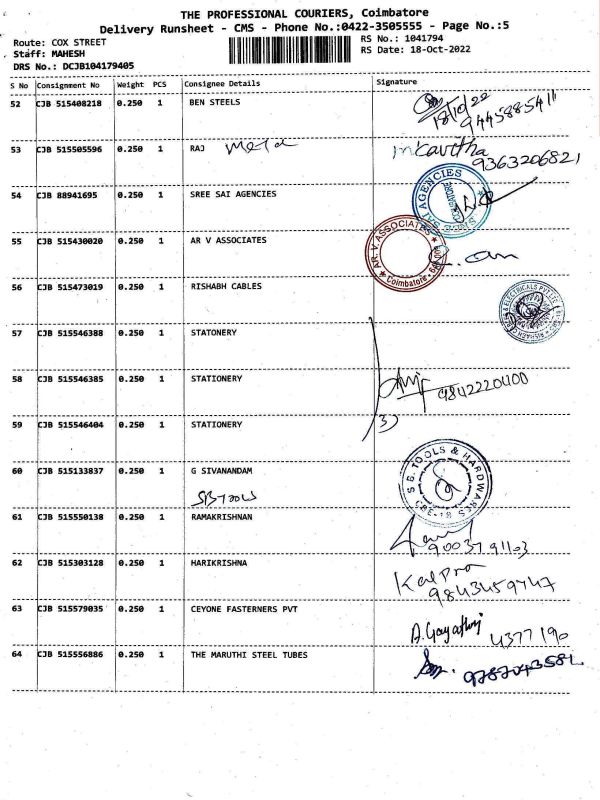 THE PROFESSIONAL COURIERS, Coimbatore
Delivery Runsheet - CMS - Phone No.:0422-3505555 - Page No.:5
Route: COX STREET RS No.: 1041794
Staff: MAHESH RS Date: 18-Oct-2022
DRS No.: DCJB104179405
S No Consignment No Weight PCS Consignee Details Signature
52 CJB 515408218 0.250 1 BEN STEELS
18/10/22
9445885411
53 CJB 515505596 0.250 1 RAJ metal
mkavitha
9363206821
54 CJB 88941695 0.250 1 SREE SAI AGENCIES
SAI AGENCIES
55 CJB 515430020 0.250 1 AR V ASSOCIATES
AR V ASSOCIATES
Coimbatore
56 CJB 515473019 0.250 1 RISHABH CABLES
57 CJB 515546388 0.250 1 STATONERY
58 CJB 515546385 0.250 1 STATIONERY
9842220400
59 CJB 515546404 0.250 1 STATIONERY
3)
60 CJB 515133837 0.250 1 G SIVANANDAM
SB Tools
S.B. TOOLS & HARDWARES
CBE-18
61 CJB 515550138 0.250 1 RAMAKRISHNAN
9003791103
62 CJB 515303128 0.250 1 HARIKRISHNA
Kalpna
9843459747
63 CJB 515579035 0.250 1 CEYONE FASTERNERS PVT
A. Gayathri 4377190
64 CJB 515556886 0.250 1 THE MARUTHI STEEL TUBES